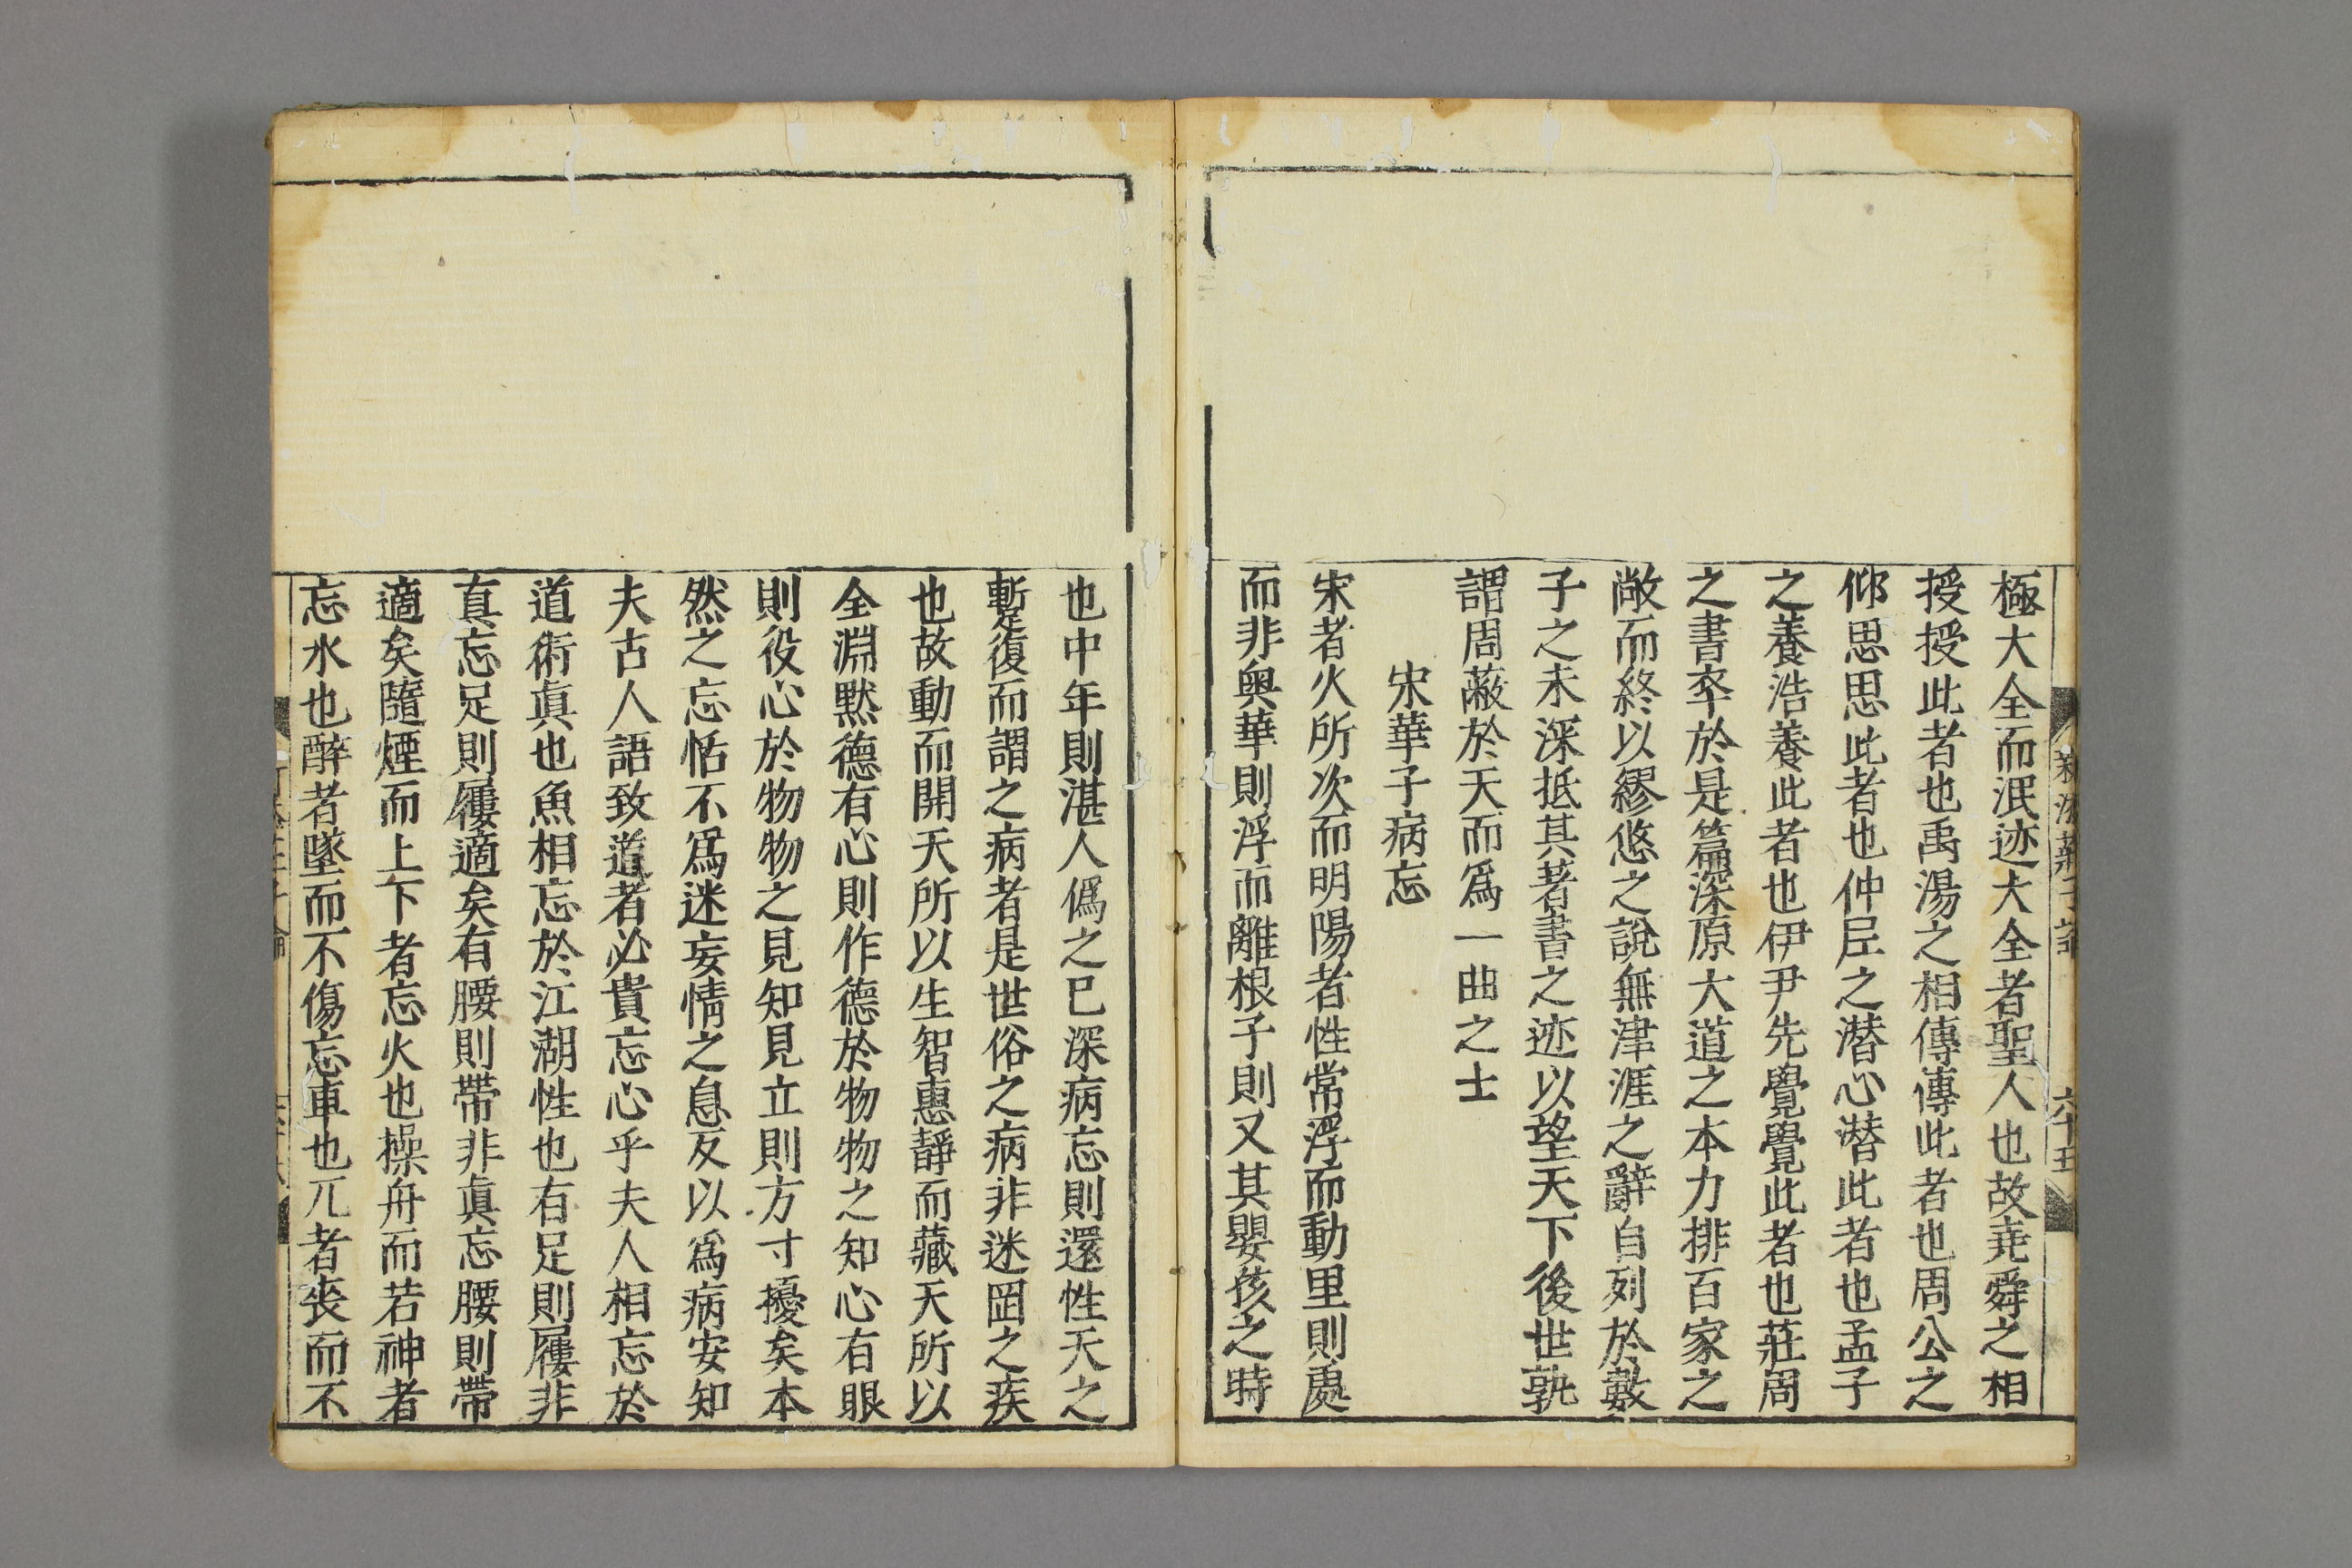 極大全而泯迹大全者聖人也故堯舜之相
授授此者也禹湯之相傳傳此者也周公之
仰思思此者也仲𡰥之潜心潜此者也孟子
之養浩養此者也伊尹先覺覺此者也莊周
之書卒於是篇深原大道之本力排百家之
敞而終以繆悠之說無津涯之辭自列於數
子之末深抵其著書之迹以望天下後世孰
謂周蔽於天而爲一曲之士
宋華子病忘
宋者火所次而明陽者性常浮而動里則處
而非奥華則浮而離根子則又其嬰孩之時
也中年則湛人僞之已深病忘則還性天之
暫復而謂之病者是世俗之病非迷罔之疾
也故動而開天所以生智惠靜而藏天所以
全淵黙德有心則作德於物物之知心有眼
則役心於物物之見知見立則方寸擾矣本
然之忘恬不爲迷妄情之息反以爲病安知
夫古人語致道者必貴忘心乎夫人相忘於
道術眞也魚相忘於江湖性也有足則屨非
眞忘足則屨適矣有腰則帶非眞忘腰則帶
適矣隨煙而上下者忘火也操舟而若神者
忘水也醉者墜而不傷忘車也兀者喪而不
六十五